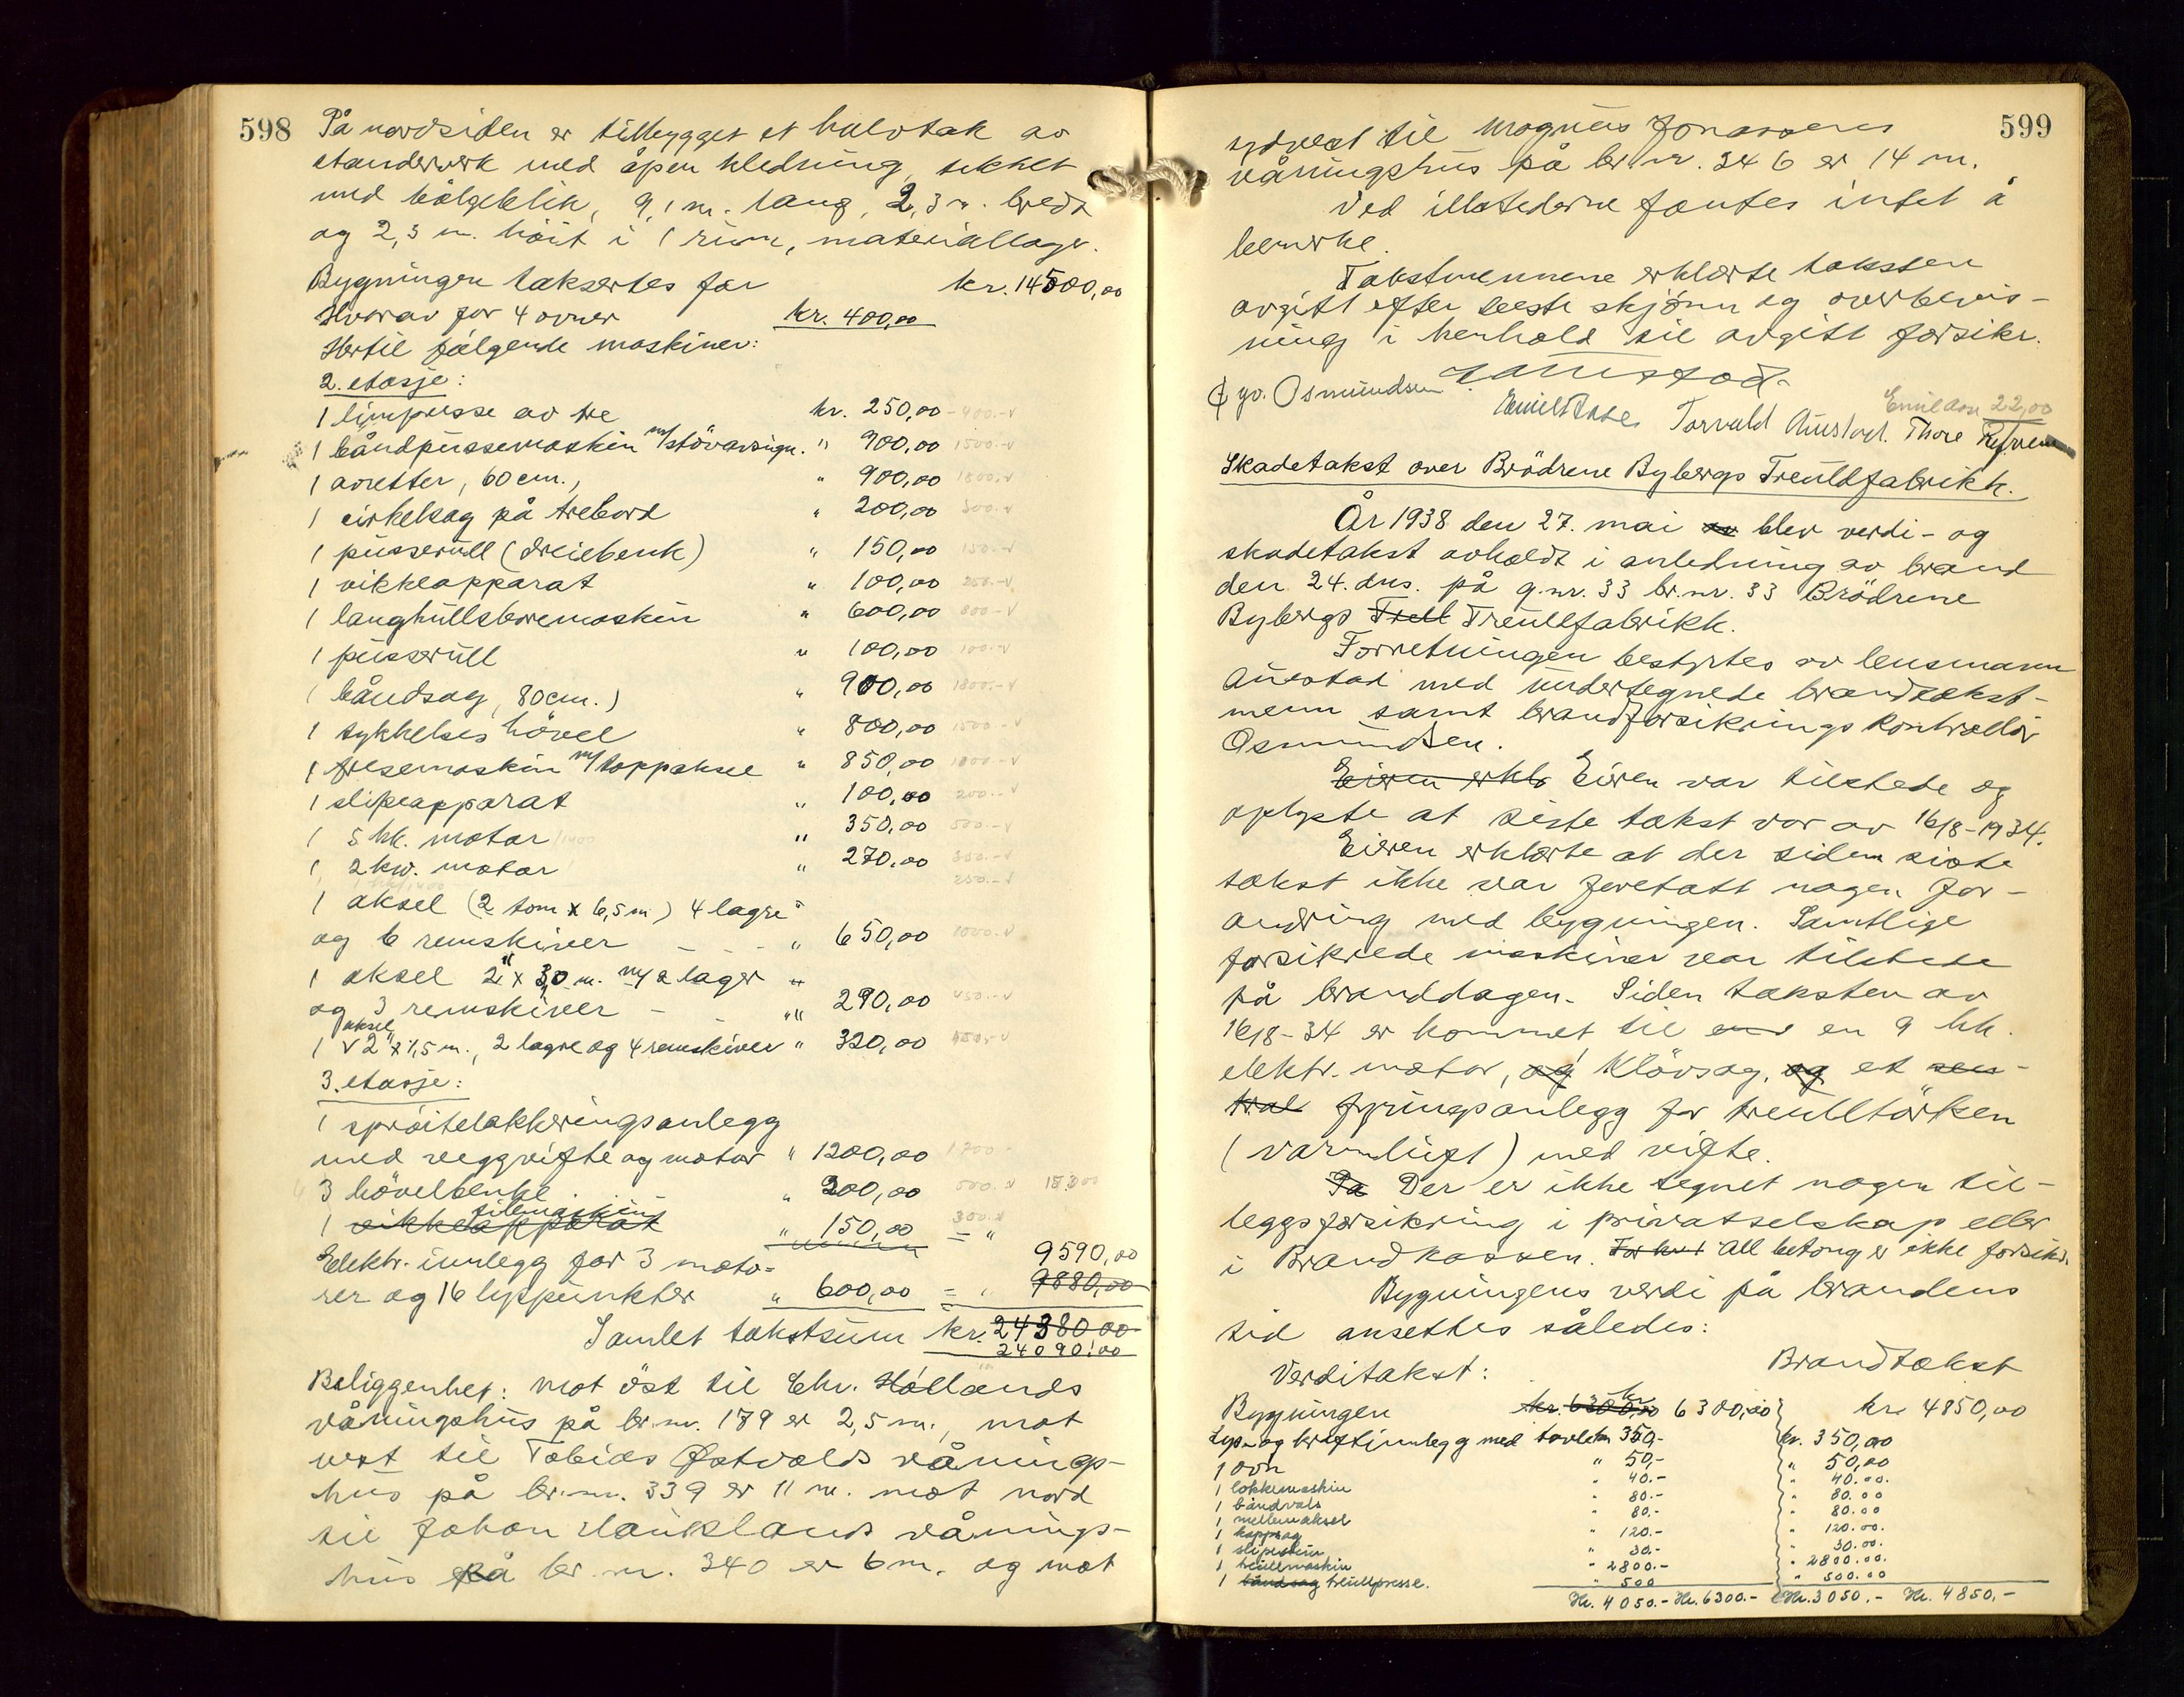 598
På nordsiden er tilbygget et halvtak av
standerverk med åpen kledning, tekket
med bølgeblik, 9,1 m. lang, 2,3 m. bredt
og 2,3 m. höit i 1 rum, materiallager.
Bygningen taksertes for kr. 14500,00
Hvorav for 4 ovner kr. 400,00
Hertil følgende maskiner:
2. etasje:
1 limpresse av tre kr. 250,00 - 400.-
1 båndpussemaskin m/stövavsugn. " 900,00 1500.-
1 avretter, 60 cm., " 900,00 1800.-
1 cirkelsag på trebord " 200,00 300.-
1 pusserull (dreiebenk) " 150,00 150.-
1 vikkleapparat " 100,00 250.-
1 langhullsboremaskin " 600,00 800.-
1 pusserull " 100,00 100.-
1 båndsag, 80 cm.) " 900,00 1800.-
1 tykkelses hövel " 800,00 1500.-
1 fresemaskin m/toppaksel " 850,00 1800.-
1 slipeapparat " 100,00 200.-
1 5 hk. motor " 350,00 500.-
1 2 kw. motor " 270,00
250.-
1 aksel (2 tom x 6,5 m) 4 lagre
og 6 remskiver - - - " 650,00 1000.-
1 aksel 2" x 3,0 m. m/2 lager "
og 3 remskiver - - " 290,00 450.-
1 aksel 2" x 1,5 m., 2 lagre og 4 remskiver " 320,00
3. etasje:
1 spröitelakkeringsanlegg
med veggvifte og motor " 1200,00
3 hövelbenke " 300,00 500.-
1 vikkleapparat filemaskin " 150,00 = " 300.-
Elektr. innlegg for 3 moto= 9590,00
rer og 16 lyspunkter " 600,00 = " 9880,00
Samlet takstsum kr. 24380,00
24090,00
Beliggenhet: mot öst til Chr. Hóllands
våningshus på br.nr. 179 er 2,5 m., mot
vest til Tobias Østvolds vånings-
hus på br.nr. 339 er 11 m. mot nord
til Johan Hauklands vånings-
hus på br.nr. 340 er 6 m. og mot
599
sydvest til Magnus Jonassens
våningshus på br.nr. 346 er 14 m.
Ved illstederne fantes intet å
bemerke.
Takstmennene erklærte taksten
avgitt efter beste skjönn og overbevis-
ning i henhold til avgitt forsikr.
Osmundsen Aurstad
Emil Aase Torvald Austad. Thore
Emil Aase 22,00
Skadetakst over Brödrene Bybergs Treuldfabrikk.
År 1938 den 27. mai blev verdi- og
skadetakst avholdt i anledning av brand
den 24. dns. på g.nr. 33 br.nr. 33 Brödrene
Bybergs Trell Treullfabrikk.
Forretningen bestyrtes av lensmann
Aurstad med undertegnede brandtakst-
menn samt brandforsikrings kontrollör
Osmundsen.
Eieren erkl. Eieren var tilstede og
oplyste at siste takst var av 16/8-1934.
Eieren erklærte at der siden siste
takst ikke var foretatt nogen for-
andring med bygningen. Samtlige
forsikrede maskiner var tilstede
på branddagen. Siden taksten av
16/8-34 er kommet til en 9 hk.
elektr. motor, og klövsag, og et sen-
tral fyringsanlegg for treulltörken
(varmluft) med vifte.
Pa Der er ikke tegnet nogen til-
leggsforsikring i privatselskap eller
i Brandkassen. For hus All betong er ikke forsikr.
Bygningens verdi på brandens
tid ansettes således:
Verditakst: Brandtakst
Bygningen kr. 6300,00 kr. 6300,00 kr. 4850,00
Lys- og kraftinnlegg med tavlen 350,- kr. 350,00
1 ovn " 50,- " 50,00
1 lokkemaskin " 40.- " 40.00.
1 båndvals " 80.- " 80.00
1 mellemaksel " 80.- " 80.00
1 kappsag " 120.- " 120.00.
1 slipestein " 30.- " 30.00.
1 treullmaskin " 2800.- " 2800.00.
1 båndsag treullpresse. " 500 " 500.00
Kr. 4050.- Kr. 6300.- Kr. 3050.- Kr. 4850,-